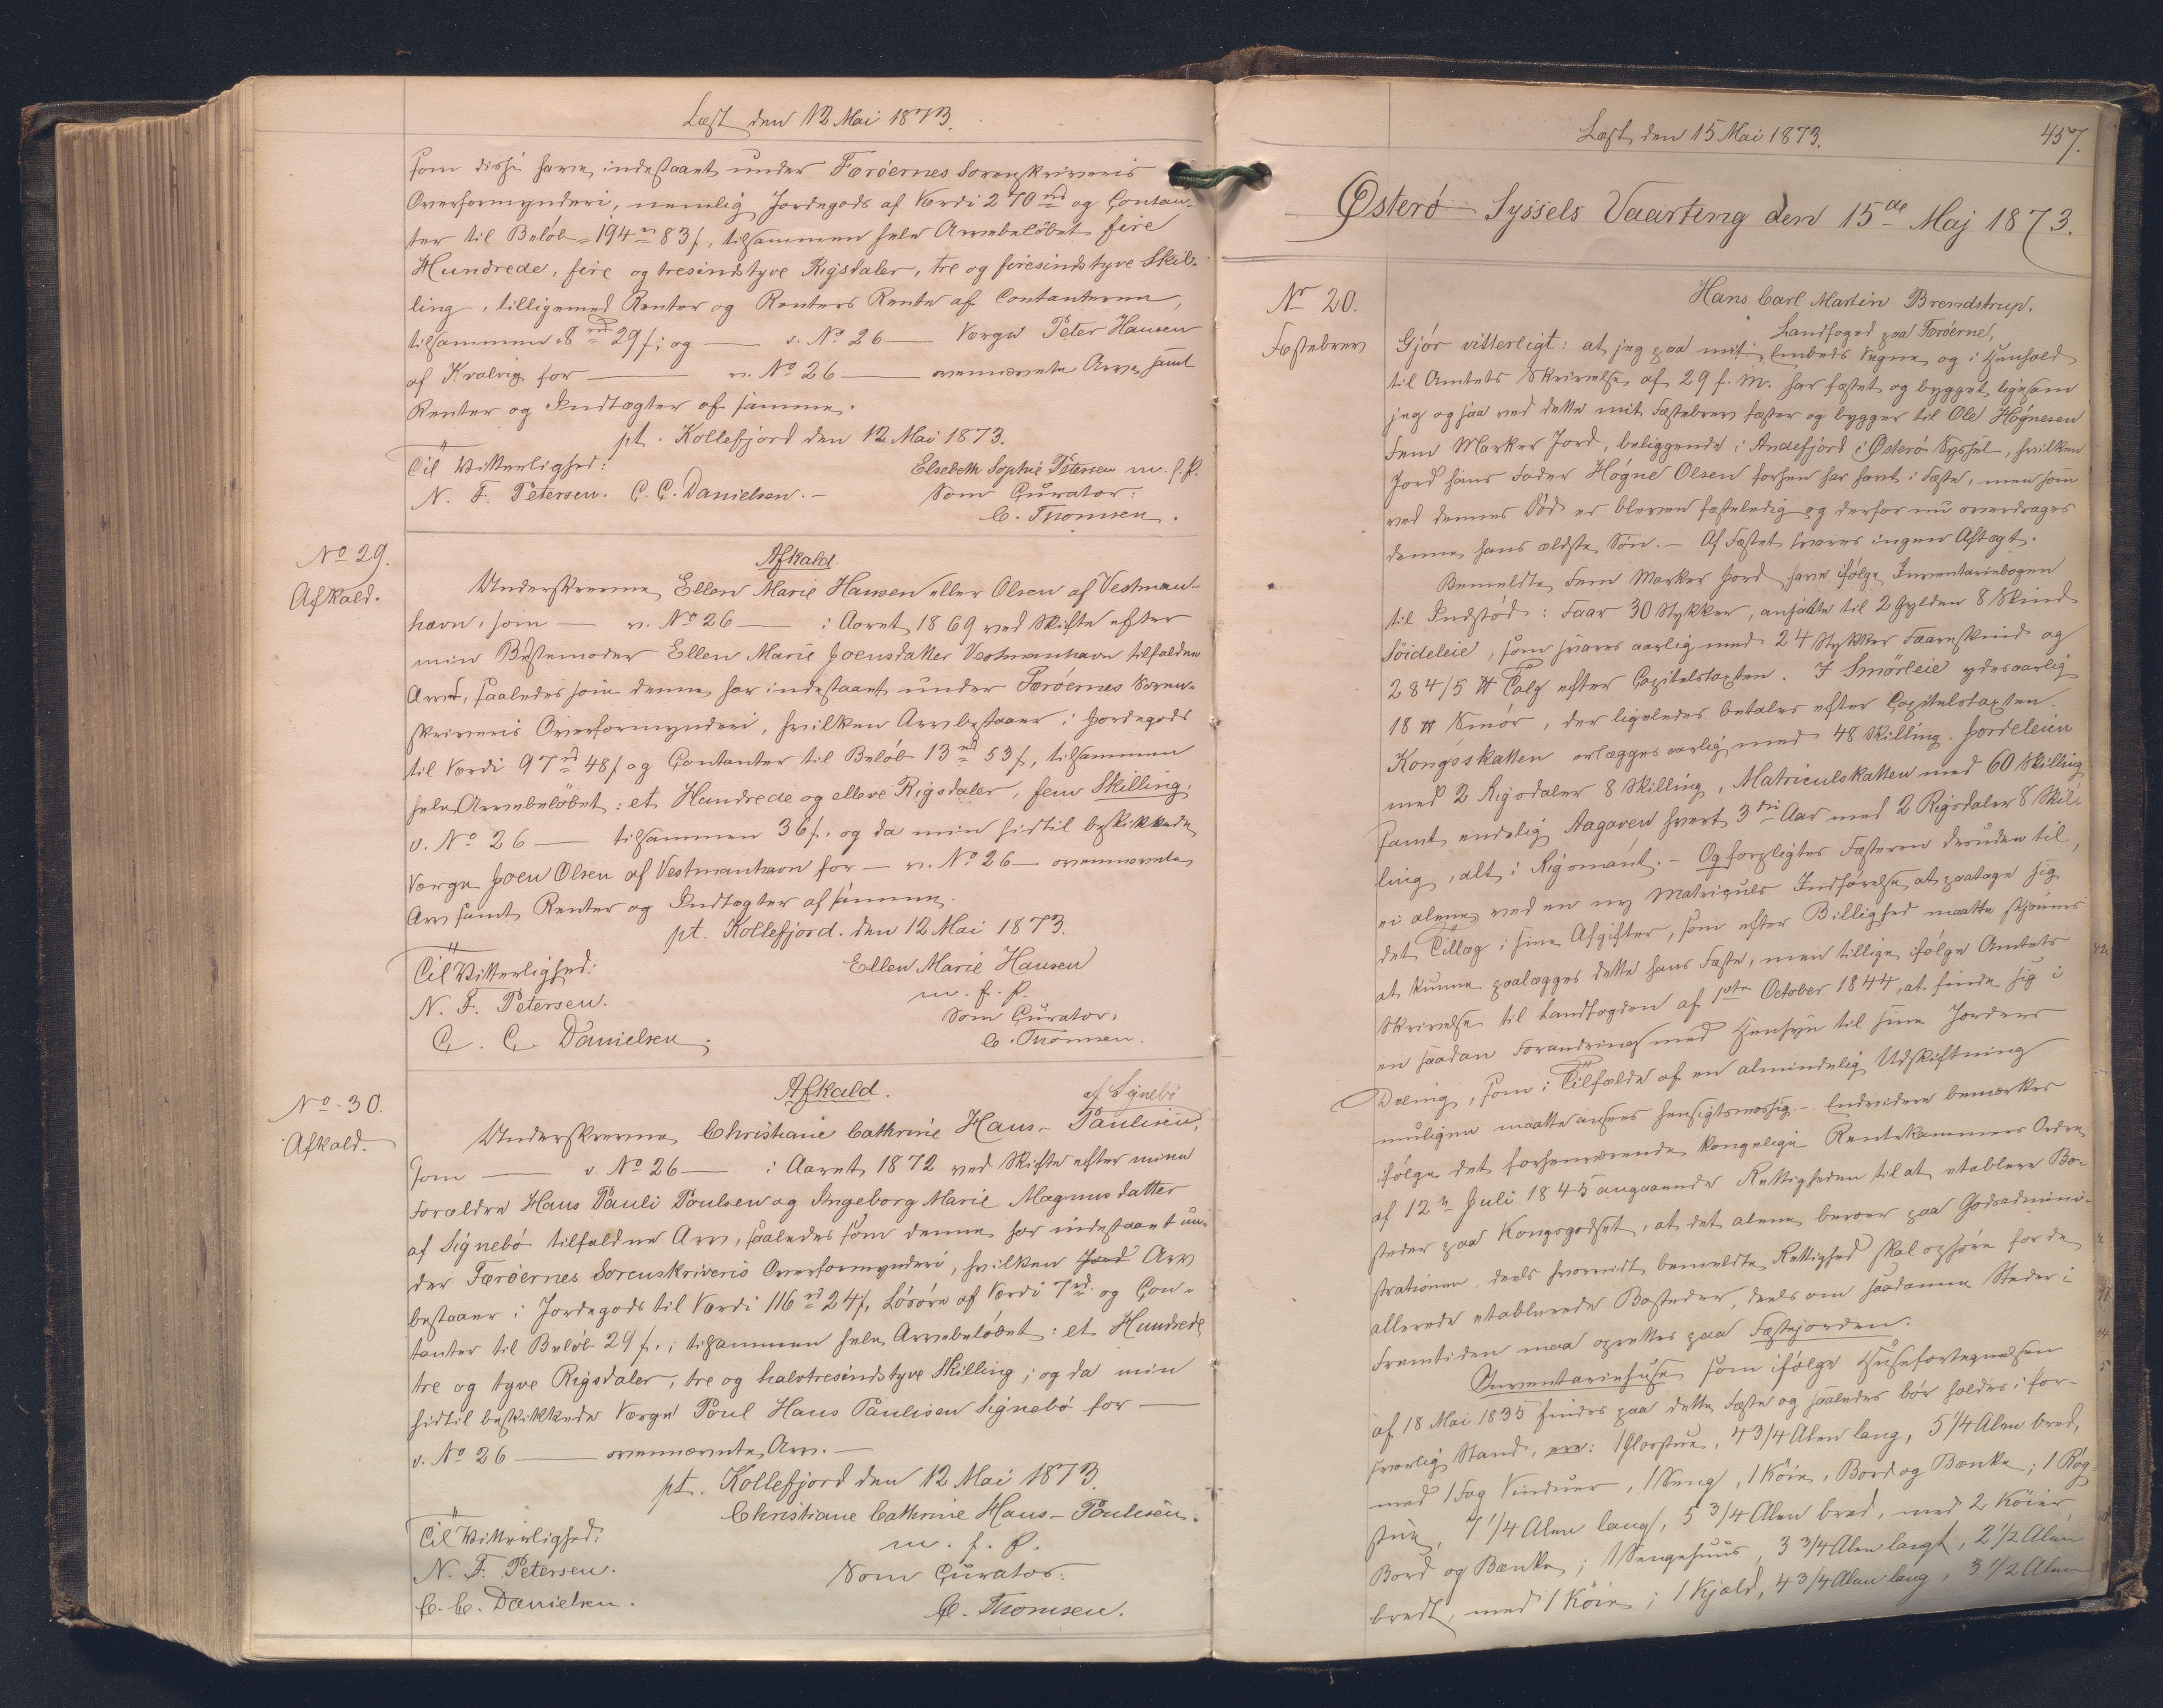 Læst den 12 Mai 1873.
som disse have indestaaet under Færöernes Sorenskriveris
Overformynderi, nemlig Jordegods af Værdi 270 rd og Contan-
ter til Beløb 194 rd 83 s, tilsammen hele Arvebeløbet fire
Hundrede, fire og tresindstyve Rigsdaler, tre og firesindstyve Skil-
ling, tilligemed Renter og Renters Rente af Contanterne,
tilsammen 8 rd 29 s; og — v. No 26 — Værge Peter Hansen
af Kvalvig for — v. No 26 — ovennævnte Arv samt
Renter og Indtægter af samme.
pt. Kollefjord den 12 Mai 1873.
Til Vitterlighed:
Elsebeth Sophie Petersen m. f. P.
N. F. Petersen. C. C. Danielsen. -
Som Curator:
C. Thomsen.
No 29.
Afkald.
Afkald.
Underskrevne Ellen Marie Hansen eller Olsen af Vestman-
havn, som — v. No 26 — i Aaret 1869 ved Skifte efter
min Bestemoder Ellen Marie Joensdatter Vestmanhavn tilfaldne
Arv, saaledes som denne har indestaaet under Færöernes Soren-
skriveris Overformynderi, hvilken Arv bestaaer i Jordegods
til Værdi 97 rd 48 s og Contanter til Beløb 13 rd 53 s, tilsammen
hele Arvebeløbet: et Hundrede og elleve Rigsdaler, fem Skilling;
v. No 26 — tilsammen 36 s. og da min hidtil beskikkede
Værge Joen Olsen af Vestmanhavn for — v. No 26 — ovennævnte
Arv samt Renter og Indtægter af samme.
pt. Kollefjord. den 12 Mai 1873.
Til Vitterlighed:
Ellen Marie Hansen
N. F. Petersen.
m. f. P.
Som Curator:
C. C. Danielsen.
C. Thomsen.
No 30.
Afkald.
Afkald.
af Signebö
Underskrevne Christiane Cathrine Hans-Paulisen,
som — v. No 26 — i Aaret 1872 ved Skifte efter mine
Forældre Hans Pauli Poulsen og Ingeborg Marie Magnusdatter
af Signebö tilfaldne Arv, saaledes som denne har indestaaet un-
der Færöernes Sorenskriveris Overformynderi, hvilken Jord Arv
bestaaer i Jordegods til Værdi 116 rd 24 s, Lösöre af Værdi 7 rd. og Con-
tanter til Beløb 29 s.; tilsammen hele Arvebeløbet: et Hundrede
tre og tyve Rigsdaler, tre og halvtresindstyve Skilling; og da min
hidtil beskikkede Værge Poul Hans Paulisen Signebö for —
v. No 26 — ovennævnte Arv. —
pt. Kollefjord den 12 Mai 1873.
Christiane Cathrine Hans-Paulisen.
Til Vitterlighed:
m. f. P.
N. F. Petersen.
Som Curator:
C. C. Danielsen.
C. Thomsen.
Læst den 15 Mai 1873.
457.
Österö Syssels Vaarting den 15de Maj 1873.
Nr 20.
Fæstebrev
Hans Carl Martin Brendstrup.
Landfoged paa Færöerne,
Gjör vitterligt: at jeg paa mit Embeds Vegne og i Henhold
til Amtets Skrivelse af 29 f. M. har fæstet og bygget ligesom
jeg og saa ved dette mit Fæstebrev fæster og bygger til Ole Högnesen
Fem Marker Jord, beliggende i Andefjord i Österö Syssel, hvilken
Jord hans Fader Högne Olsen forhen har havt i Fæste, men som
ved dennes Död er bleven fæsteledig og derfor nu overdrages
denne hans ældste Sön. — Af Fæstet svares ingen Aftægt.
Bemeldte Fem Marker Jord have ifølge Inventariebogen
til Indstöd: Faar 30 Stykker, ansatte til 2 Gylden 8 Skind
Söideleie, som svares aarlig med 24 Stykker Faareskind og
28 4/5 ℔ Talg efter Capitelstaxten. I Smörleie ydes aarlig
18 ℔ Smör, der ligeledes betales efter Capitelstaxten.
Kongsskatten erlægges aarlig med 48 Skilling. Jordeleien
med 2 Rigsdaler 8 Skilling, Matriculskatten med 60 Skilling
samt endelig Aagaven hvert 3die Aar med 2 Rigsdaler 8 Skil-
ling, alt i Rigsmönt. — Og forpligtes Fæsteren desuden til,
ei alene ved en ny Matriculs Indførelse at paatage sig
det Tillæg i sine Afgifter, som efter Billighed maatte skjönnes
at kunne paalægges dette hans Fæste, men tillige ifølge Amtets
Skrivelse til Landfogden af 1ste October 1844, at finde sig i
en saadan Forandring med Hensyn til sine Jorders
Deling, som i Tilfælde af en almindelig Udskiftning
muligen maatte ansees hensigtsmæssig. — Endvidere bemærkes
ifølge det forhenværende kongelige Rentekammers Ordre
af 12te Juli 1845 angaaende Rettigheden til at etablere Bo-
steder paa Kongsgodset, at det alene beroer paa Godsadmini-
strationen, deels hvorvidt bemeldte Rettighed skal ophöre for de
allerede etablerede Bosteder, deels om saadanne Steder i
Fremtiden maa oprettes paa Fæstejorden.
Inventariehuse som ifølge Husefortegnelsen
af 18 Mai 1835 findes paa dette Fæste og saaledes bör holdes i for-
svarlig Stand, ere: 1 Glasstue, 4 3/4 Alen lang, 5 1/4 Alen bred,
med 1 Fag Vinduer, 1 Seng, 1 Köie, Bord og Bænke; 1 Rög-
stue, 7 1/4 Alen lang, 5 3/4 Alen bred, med 2 Köier
Bord og Bænke; 1 Sengehuus, 3 3/4 Alen langt, 2 1/2 Alen
bredt, med 1 Köie; 1 Kjæld, 4 3/4 Alen lang, 3 1/2 Alen